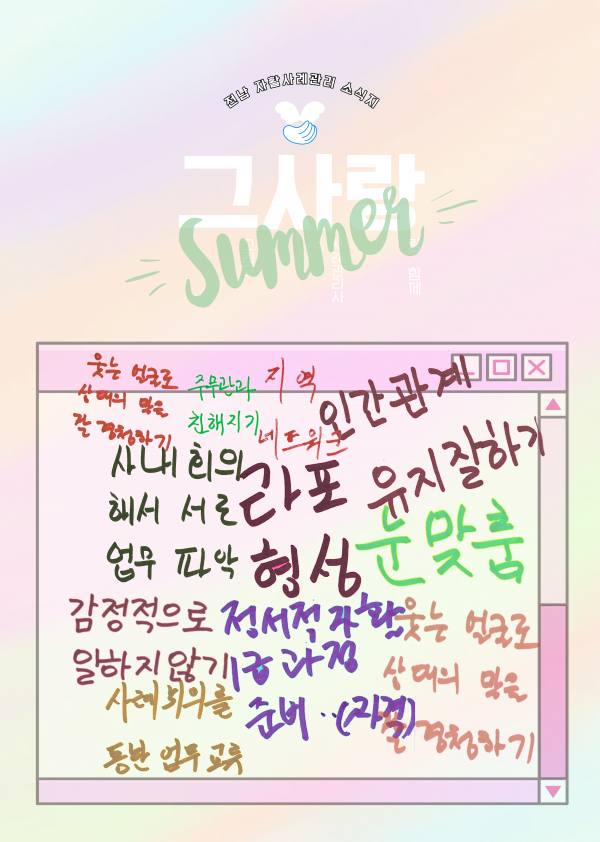 전남 자활사례관리 소식지
그사랑
Summer
함께
웃는 얼굴로
상대의 말을
잘 경청하기
주무관과
친해지기
지역
네트워크
인간관계
유지잘하기
사내 회의
해서 서로
업무 파악
라포
형성
눈맞춤
감정적으로
일하지 않기
정서적 자활
1급 과정
준비..(자격)
웃는 얼굴로
상대의 말을
잘 경청하기
사례회의를
동반 업무 교류